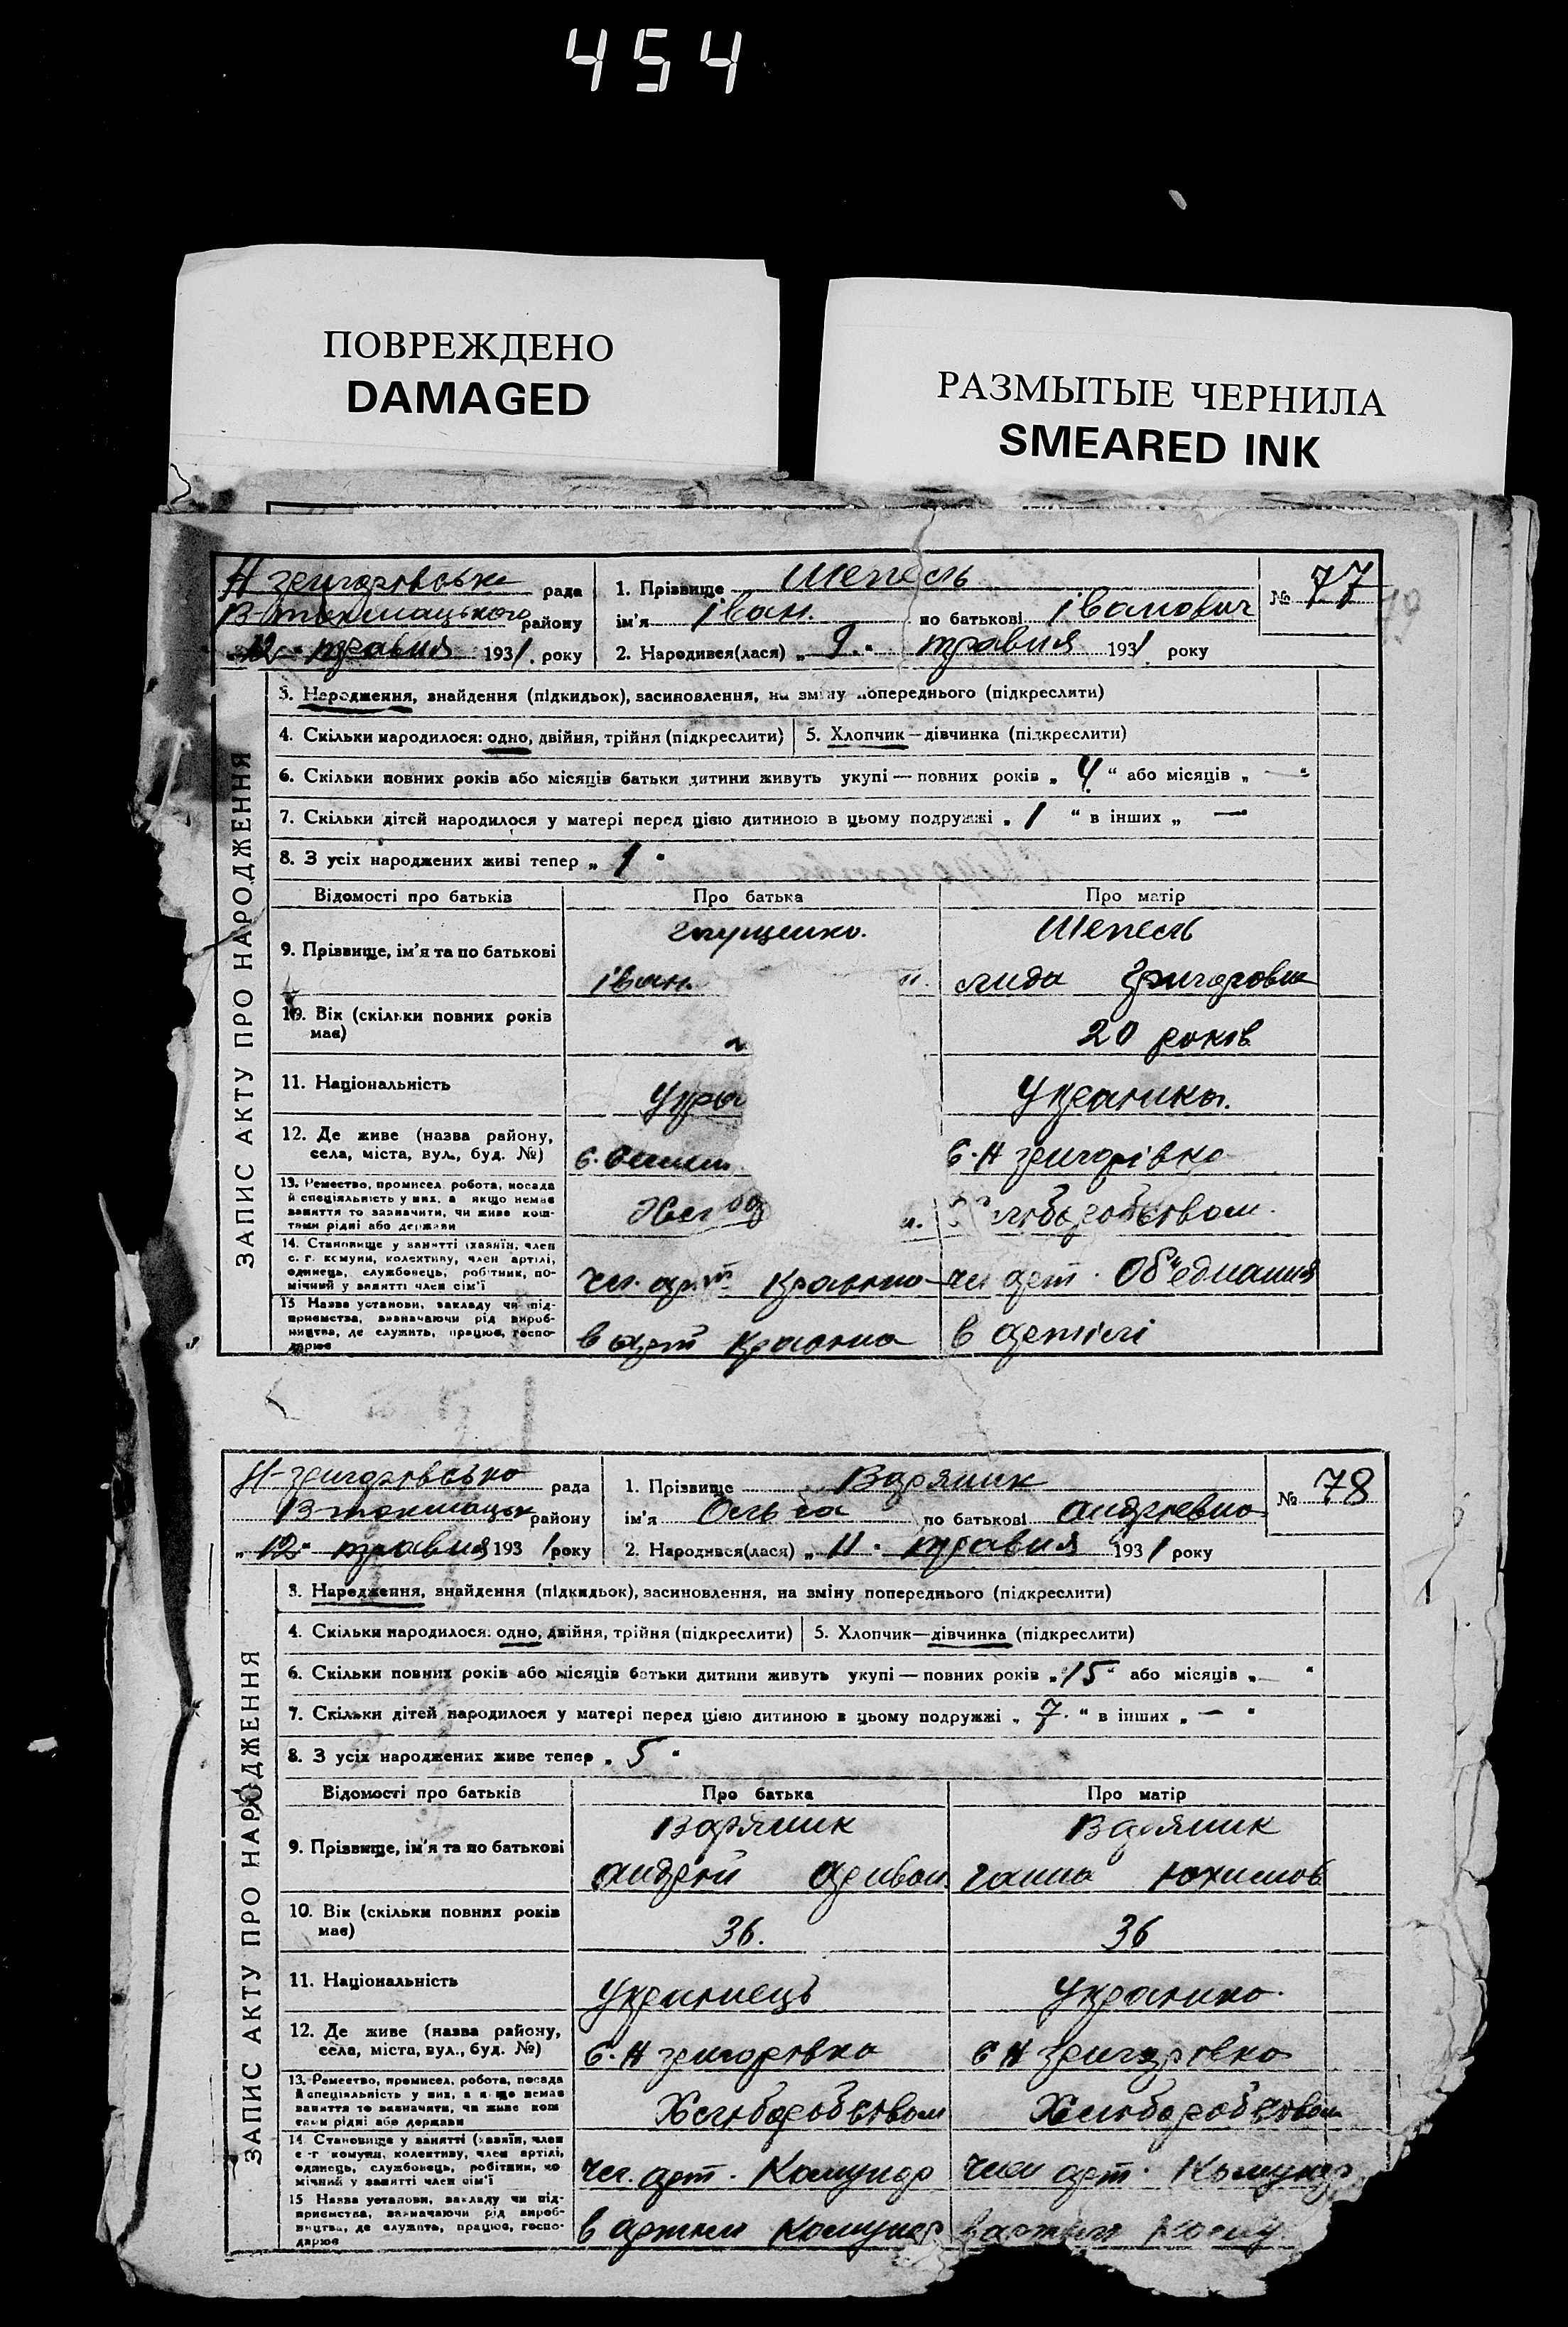 454
ПОВРЕЖДЕНО
DAMAGED
РАЗМЫТЫЕ ЧЕРНИЛА
SMEARED INK
Н григорівська рада
В-токмацького району
„12“ травня 1931. року
1. Прізвище Шепель
ім'я Іван. по батькові Іванович
2. Народився(лася) „9.“ травня 1931. року
№ 77
ЗАПИС АКТУ ПРО НАРОДЖЕННЯ
3. Народження, знайдення (підкидьок), засиновлення, на зміну попереднього (підкреслити)
4. Скільки народилося: одно, двійня, трійня (підкреслити) 5. Хлопчик—дівчинка (підкреслити)
6. Скільки повних років або місяців батьки дитини живуть укупі — повних років „4“ або місяців „—“
7. Скільки дітей народилося у матері перед цією дитиною в цьому подружжі „1“ в інших „—
8. З усіх народжених живі тепер „1“
Відомості про батьків Про батька Про матір
9. Прізвище, ім'я та по батькові
Іван.
Шепель
лида Григоровна
10. Вік (скільки повних років має)
20 років
11. Національність
Украінка.
12. Де живе (назва району, села, міста, вул., буд. №)
с. Н григорівка
13. Ремество, промисел, робота, посада й спеціяльність у них, а якщо немає заняття то зазначити, чи живе коштами рідні або держави
14. Становище у занятті (хазяїн, член с.-г. комуни, колективу, член артілі, одинець, службовець, робітник, помічний у занятті член сім'ї
чл. арт. чл арт. Об'єднання
15 Назва установи, закладу чи підприємства, визначаючи рід виробництва, де служить, працює, господарює
в арт в артілі
Н-григорівська рада
В токмацьк району
„12“ травня 1931 року
1. Прізвище Варяник
ім'я Ольга по батькові Андріевна
2. Народився(лася) „11“ травня 1931 року
№ 78
ЗАПИС АКТУ ПРО НАРОДЖЕННЯ
3. Народження, знайдення (підкидьок), засиновлення, на зміну попереднього (підкреслити)
4. Скільки народилося: одно, двійня, трійня (підкреслити) 5. Хлопчик—дівчинка (підкреслити)
6. Скільки повних років або місяців батьки дитини живуть укупі — повних років „15“ або місяців „—“
7. Скільки дітей народилося у матері перед цією дитиною в цьому подружжі „7.“ в інших „—“
8. З усіх народжених живе тепер „5“
Відомості про батьків Про батька Про матір
9. Прізвище, ім'я та по батькові
Варяник Варяник
Андрій ганна Юхимов
10. Вік (скільки повних років має)
36. 36
11. Національність
Українець Украінка.
12. Де живе (назва району, села, міста, вул., буд. №)
с. Н григорівка с Н григорівка
13. Ремество, промисел, робота, посада й спеціяльність у них, а якщо немає заняття то зазначити, чи живе коштами рідні або держави
Хліборобством Хліборобством
14 Становище у занятті (хазяїн, член с.-г комуни, колективу, член артілі, одинець, службовець, робітник, помічний у занятті член сім'ї
чл. арт. Комунар член арт. Комунар
15 Назва установи, закладу чи підприємства, визначаючи рід виробництва, де служить, працює, господарює
в артіли Комунар в артіли Кому